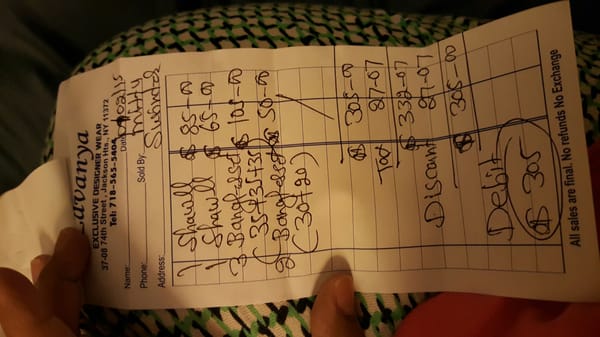 Lavanya
EXCLUSIVE DESIGNER WEAR
37-08 74th Street, Jackson Hts., NY 11372
Tel: 718-565-5464
Name:
Date:
Phone:
Sold By:
Address:
1 Shawll $ 85-00
1 Shawll $ 65-00
3 $ 105-00
(35+35+35)
2 $ 50-00
(30+20)
$ 305-00
Tax 27-07
$ 332-07
Discount 27-07
$ 305-00
Debit
$ 305
All sales are final. No refunds No Exchange